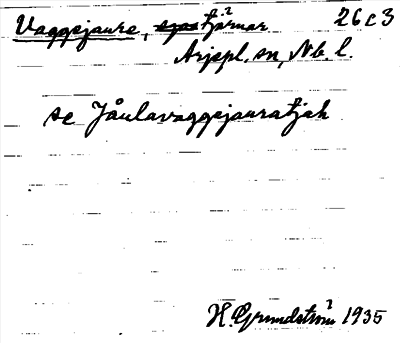 Vaggejaure, 2 tjärnar 26c3
Arjepl. sn, Nb. l.
se Jåulavaggejauratjah
H. Grundström 1935